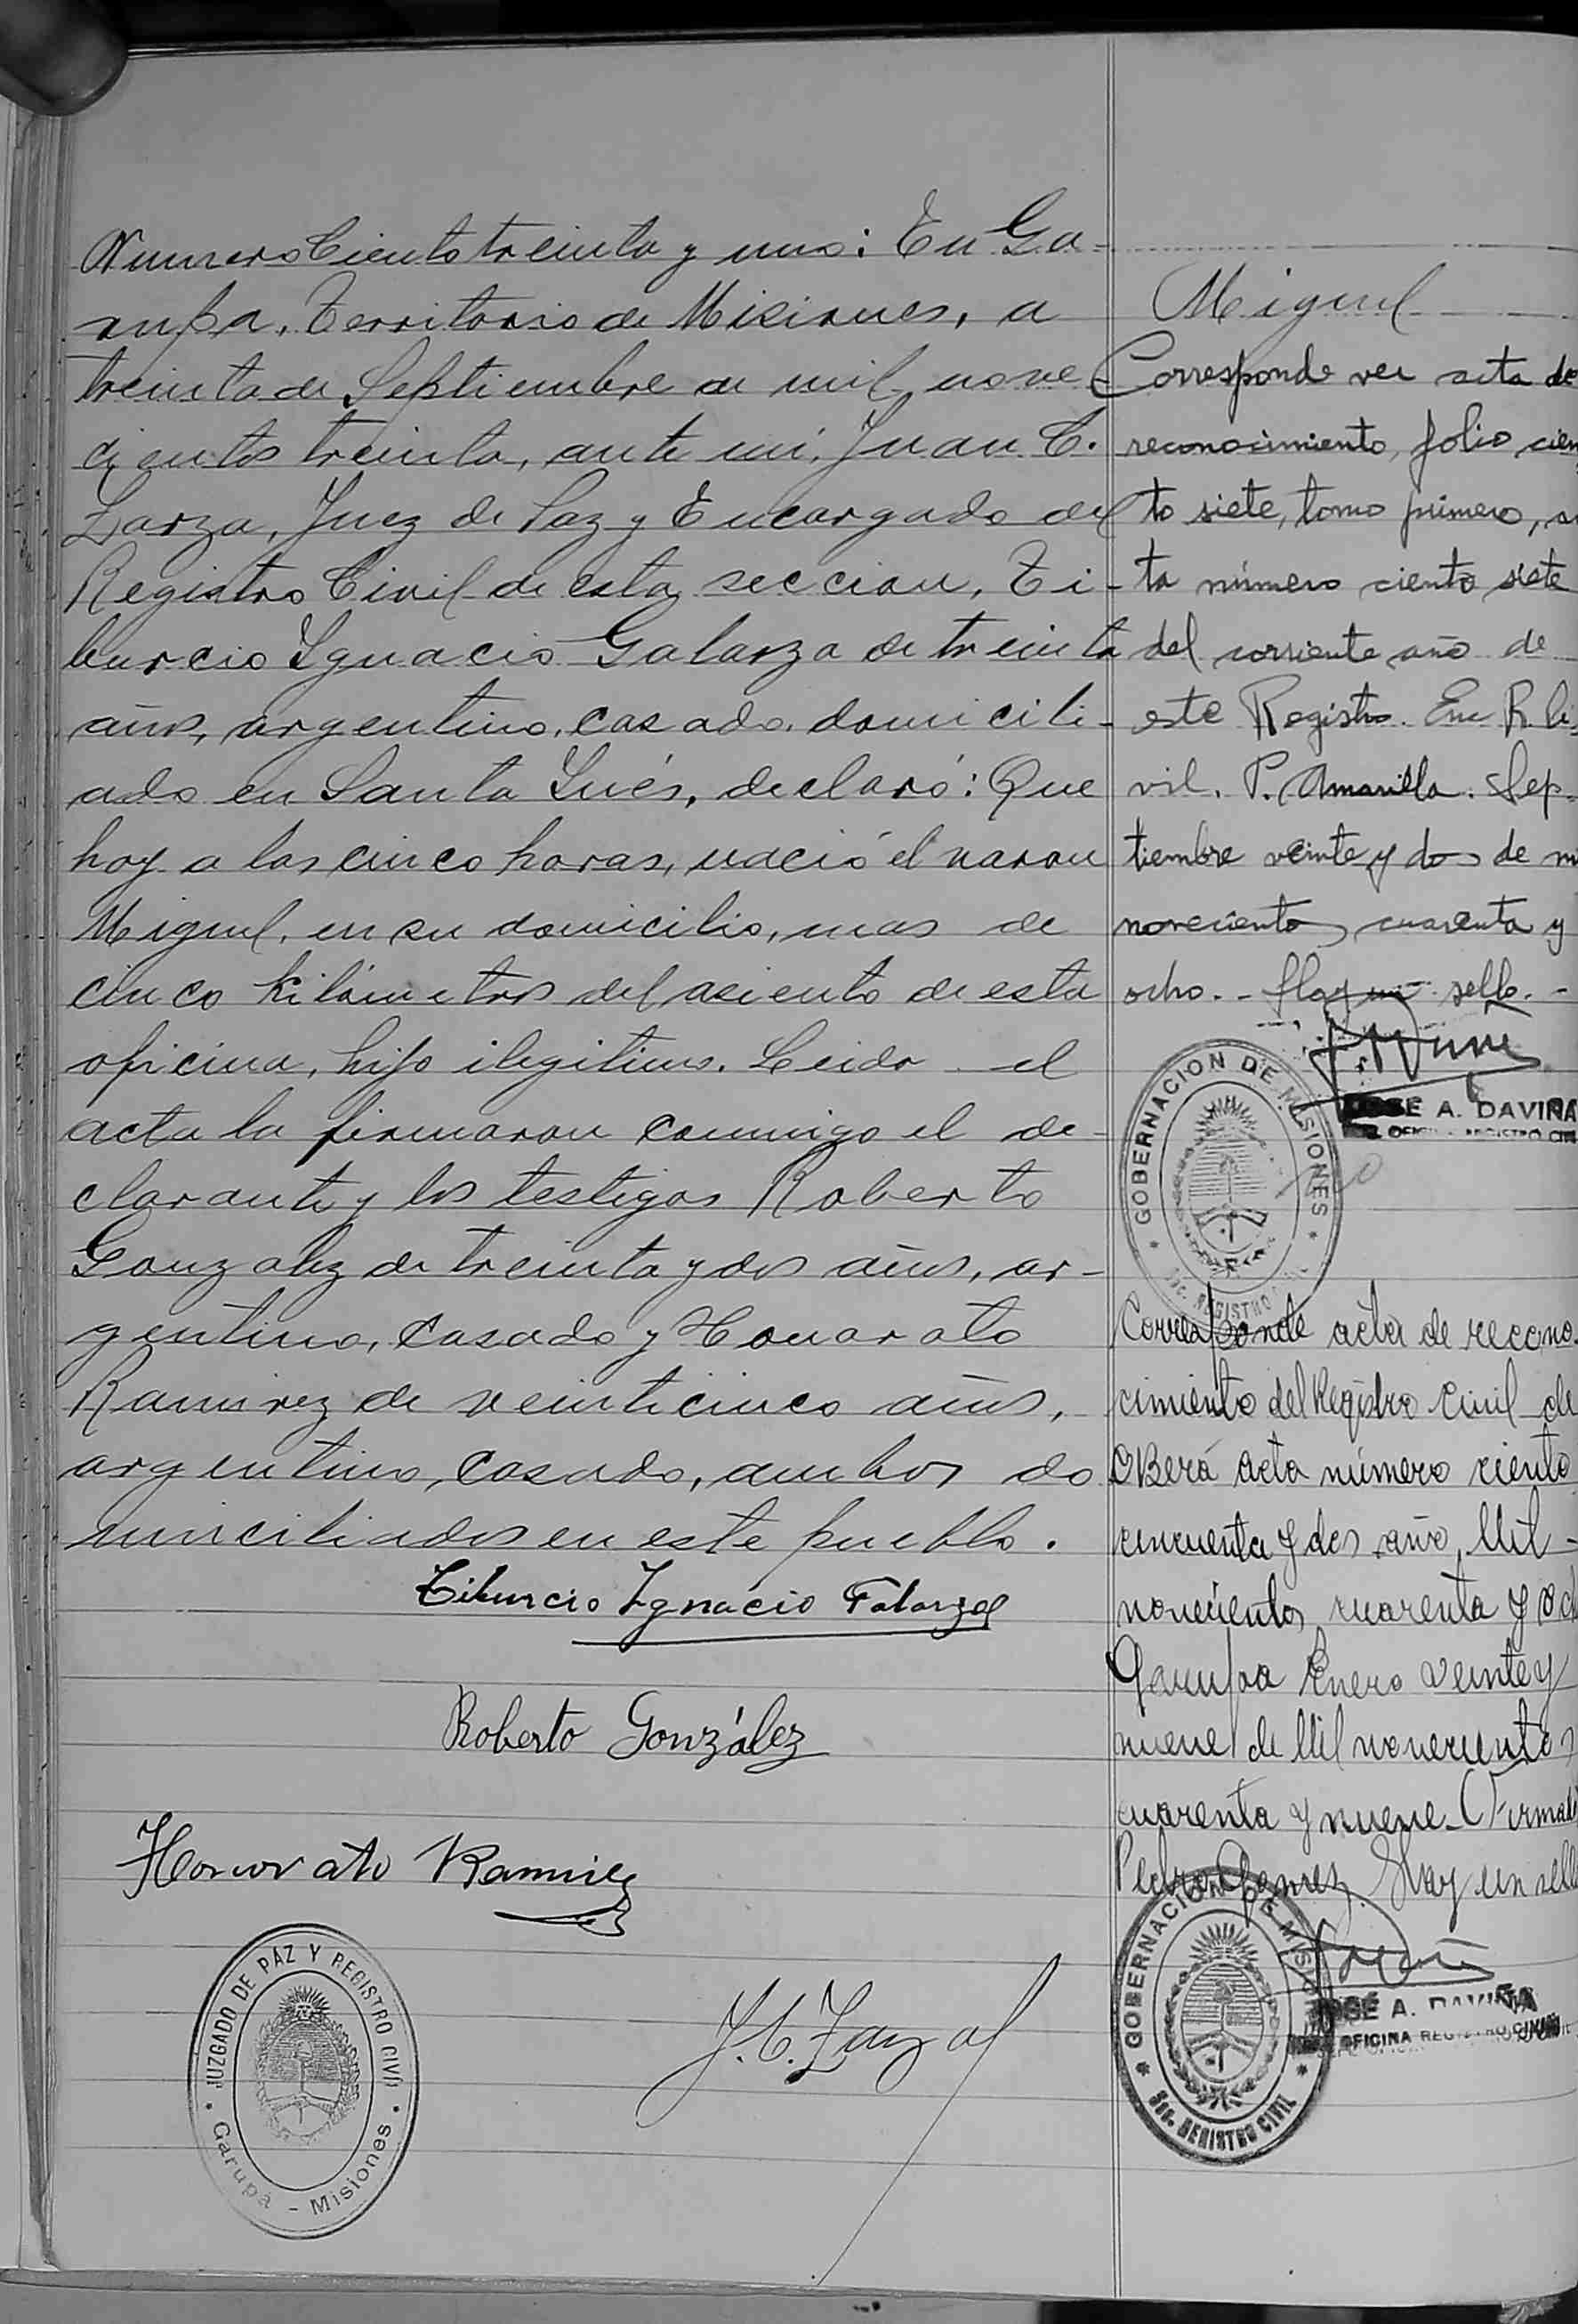 Numero Ciento treinta y uno: En Ga-
rupa, Territorio de Misiones, a
treinta de Septiembre de mil nove-
cientos treinta, ante mí, Juan C.
Zarza, Juez de Paz y Encargado del
Registro Civil de esta seccion, Ti-
burcio Ygnacio Galarza de treinta
años, argentino, casado, domicili-
ado en Santa Inés, declaró: Que
hoy a las cinco horas, nació el varon
Miguel, en su domicilio, mas de
cinco kilómetros del asiento de esta
oficina, hijo ilegitimo. Leida el
acta la firmaron conmigo el de-
clarante y los testigos Roberto
Gonzalez de treinta y dos años, ar-
gentino, casado y Honorato
Ramirez de veinticinco años,
argentino, casado, ambos do
miciliados en este pueblo.
Tiburcio Ygnacio Galarza
Roberto González
Honorato Ramirez
J. C. Zarza
JUZGADO DE PAZ Y REGISTRO CIVIL
Garupá - Misiones
Miguel
Corresponde ver acta de
reconocimiento, folio cien
to siete, tomo primero, ac
ta número ciento siete
del corriente año de
este Registro. Enc R. Ci-
vil. P. Amarilla. Sep-
tiembre veinte y dos de mi
novecientos cuarenta y
ocho.- Hay un sello.-
JOSE A. DAVIÑA
OFICINA REGISTRO CIVIL
GOBERNACION DE MISIONES
Sec. REGISTRO
Corresponde acta de recono-
cimiento del Registro Civil de
OBerá acta número ciento
cincuenta y dos año Mil-
novecientos cuarenta y och
Garupa Enero veinte y
nueve de Mil novecientos
cuarenta y nueve.- (Firmado
Pedro Gomez. Hay un sello
GOBERNACION DE MISIONES
Sec. REGISTRO CIVIL
JOSE A. DAVIÑA
OFICINA REGISTRO CIVIL